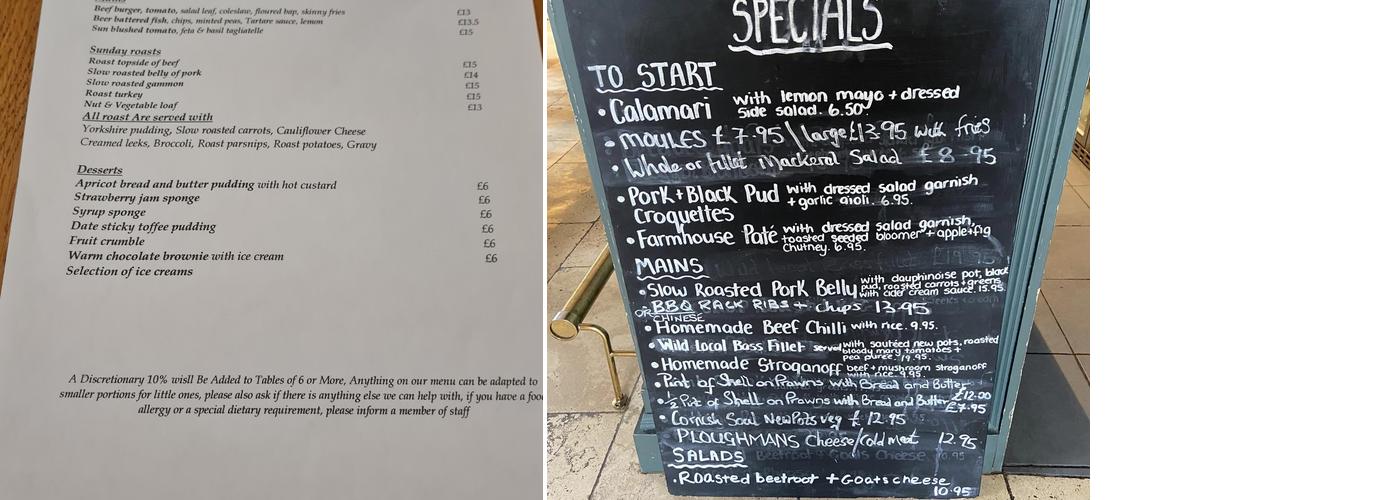 Beef burger, tomato, salad leaf, coleslaw, floured bap, skinny fries £13
Beer battered fish, chips, minted peas, Tartare sauce, lemon £13.5
Sun blushed tomato, feta & basil tagliatelle £15
Sunday roasts
Roast topside of beef £15
Slow roasted belly of pork £14
Slow roasted gammon £15
Roast turkey £15
Nut & Vegetable loaf £13
All roast Are served with
Yorkshire pudding, Slow roasted carrots, Cauliflower Cheese
Creamed leeks, Broccoli, Roast parsnips, Roast potatoes, Gravy
Desserts
Apricot bread and butter pudding with hot custard £6
Strawberry jam sponge £6
Syrup sponge £6
Date sticky toffee pudding £6
Fruit crumble £6
Warm chocolate brownie with ice cream £6
Selection of ice creams
A Discretionary 10% wisll Be Added to Tables of 6 or More, Anything on our menu can be adapted to
smaller portions for little ones, please also ask if there is anything else we can help with, if you have a foo
allergy or a special dietary requirement, please inform a member of staff
SPECIALS
TO START
• Calamari with lemon mayo + dressed
side salad. 6.50
• MOULES £7.95 \ large £13.95 with fries
• Whole or fillet Mackeral Salad £8.95
• Pork + Black Pud with dressed salad garnish
Croquettes + garlic aioli. 6.95.
• Farmhouse Paté with dressed salad garnish,
toasted seeded bloomer + apple + fig
Chutney. 6.95.
MAINS
• Slow Roasted Pork Belly with dauphinoise pot, black
pud, roasted carrots + greens
with cider cream sauce. 15.95.
• BBQ RACK RIBS + chips 13.95
OR CHINESE
• Homemade Beef Chilli with rice. 9.95.
• Wild Local Bass Fillet served with sautéed new pots, roasted
bloody mary tomatoes +
pea puree. 19.95.
• Homemade Stroganoff beef + mushroom stroganoff
with rice. 9.95.
• Pint of Shell on Prawns with Bread and Butter £12.00
• ½ Pint of Shell on Prawns with Bread and Butter £7.95
• Cornish Soul New Pots veg £12.95
PLOUGHMANS Cheese/Cold meat 12.95
SALADS
• Roasted beetroot + Goats cheese
10.95